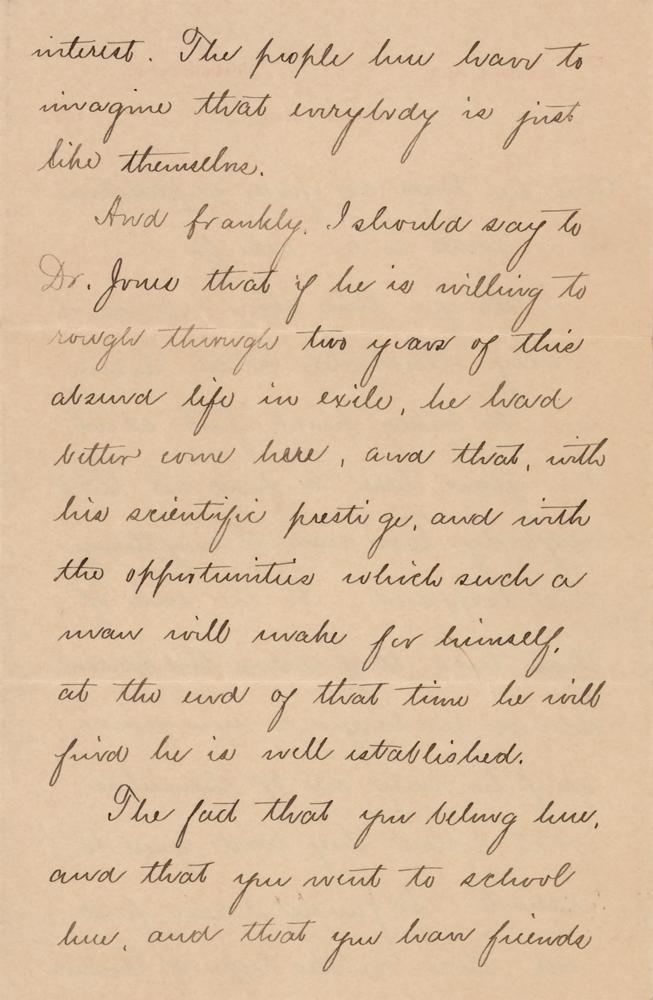 interest. The people here have to
imagine that everybody is just
like themselves.
And frankly, I should say to
Dr. Jones that if he is willing to
rough through two years of this
absurd life in exile, he had
better come here, and that, with
his scientific prestige, and with
the opportunities which such a
man will make for himself,
at the end of that time he will
find he is well established.
The fact that you belong here,
and that you went to school
here, and that you have friends